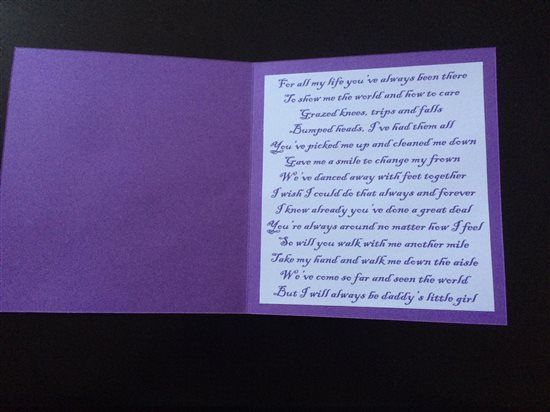 For all my life you've always been there
To show me the world and how to care
Grazed knees, trips and falls
Bumped heads, I've had them all
You've picked me up and cleaned me down
Gave me a smile to change my frown
We've danced away with feet together
I wish I could do that always and forever
I know already you've done a great deal
You're always around no matter how I feel
So will you walk with me another mile
Take my hand and walk me down the aisle
We've come so far and seen the world
But I will always be daddy's little girl